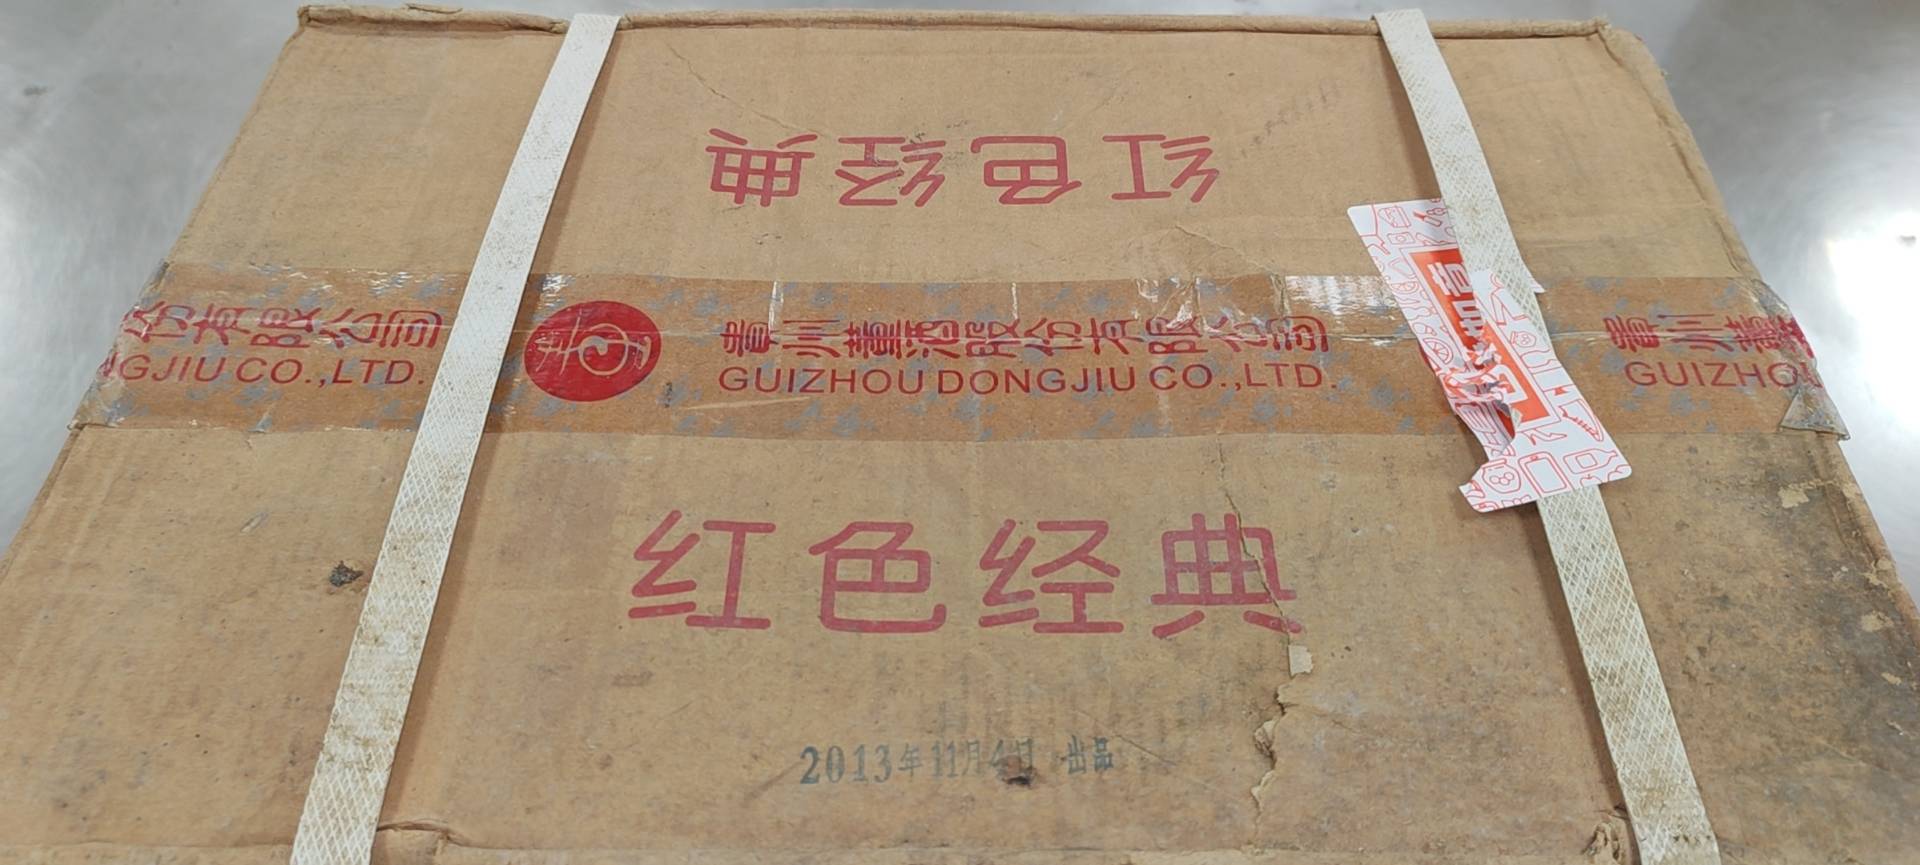 红色经典
份有限公司
NGJIU CO.,LTD.
貴州董酒股份有限公司
GUIZHOU DONGJIU CO.,LTD.
貴州董
GUIZHOU
红色经典
2013年11月4日 出品